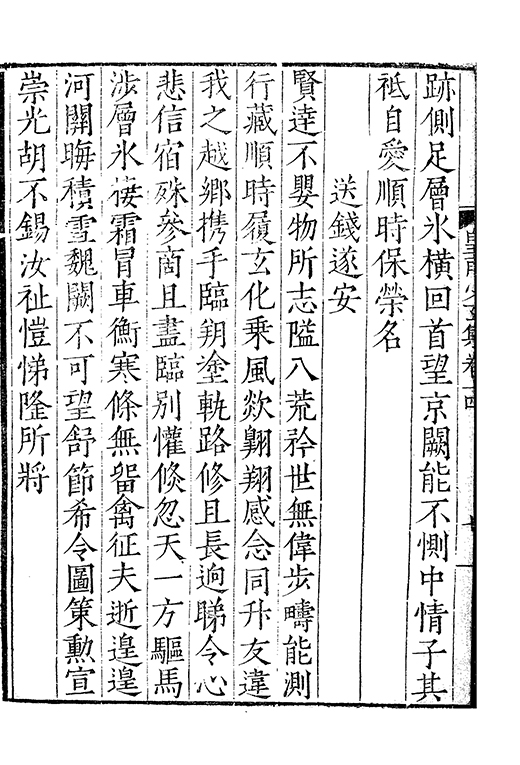 跡側足層氷橫回首望京闕能不惻中情子其
祗自愛順時保榮名
送錢遂安
賢達不嬰物所志隘八荒衿世無偉步疇能測
行藏順時履玄化乗風欻翺翔感念同升友違
我之越鄉携手臨朔塗軌路修且長逈睇令心
悲信宿殊參啇且盡臨別懽倐忽天一方驅馬
涉層氷棲霜冒車衡寒條無留禽征夫逝遑遑
河關晦積雪魏闕不可望舒節希令圖策勲宣
崇光胡不錫汝祉愷悌隆所將